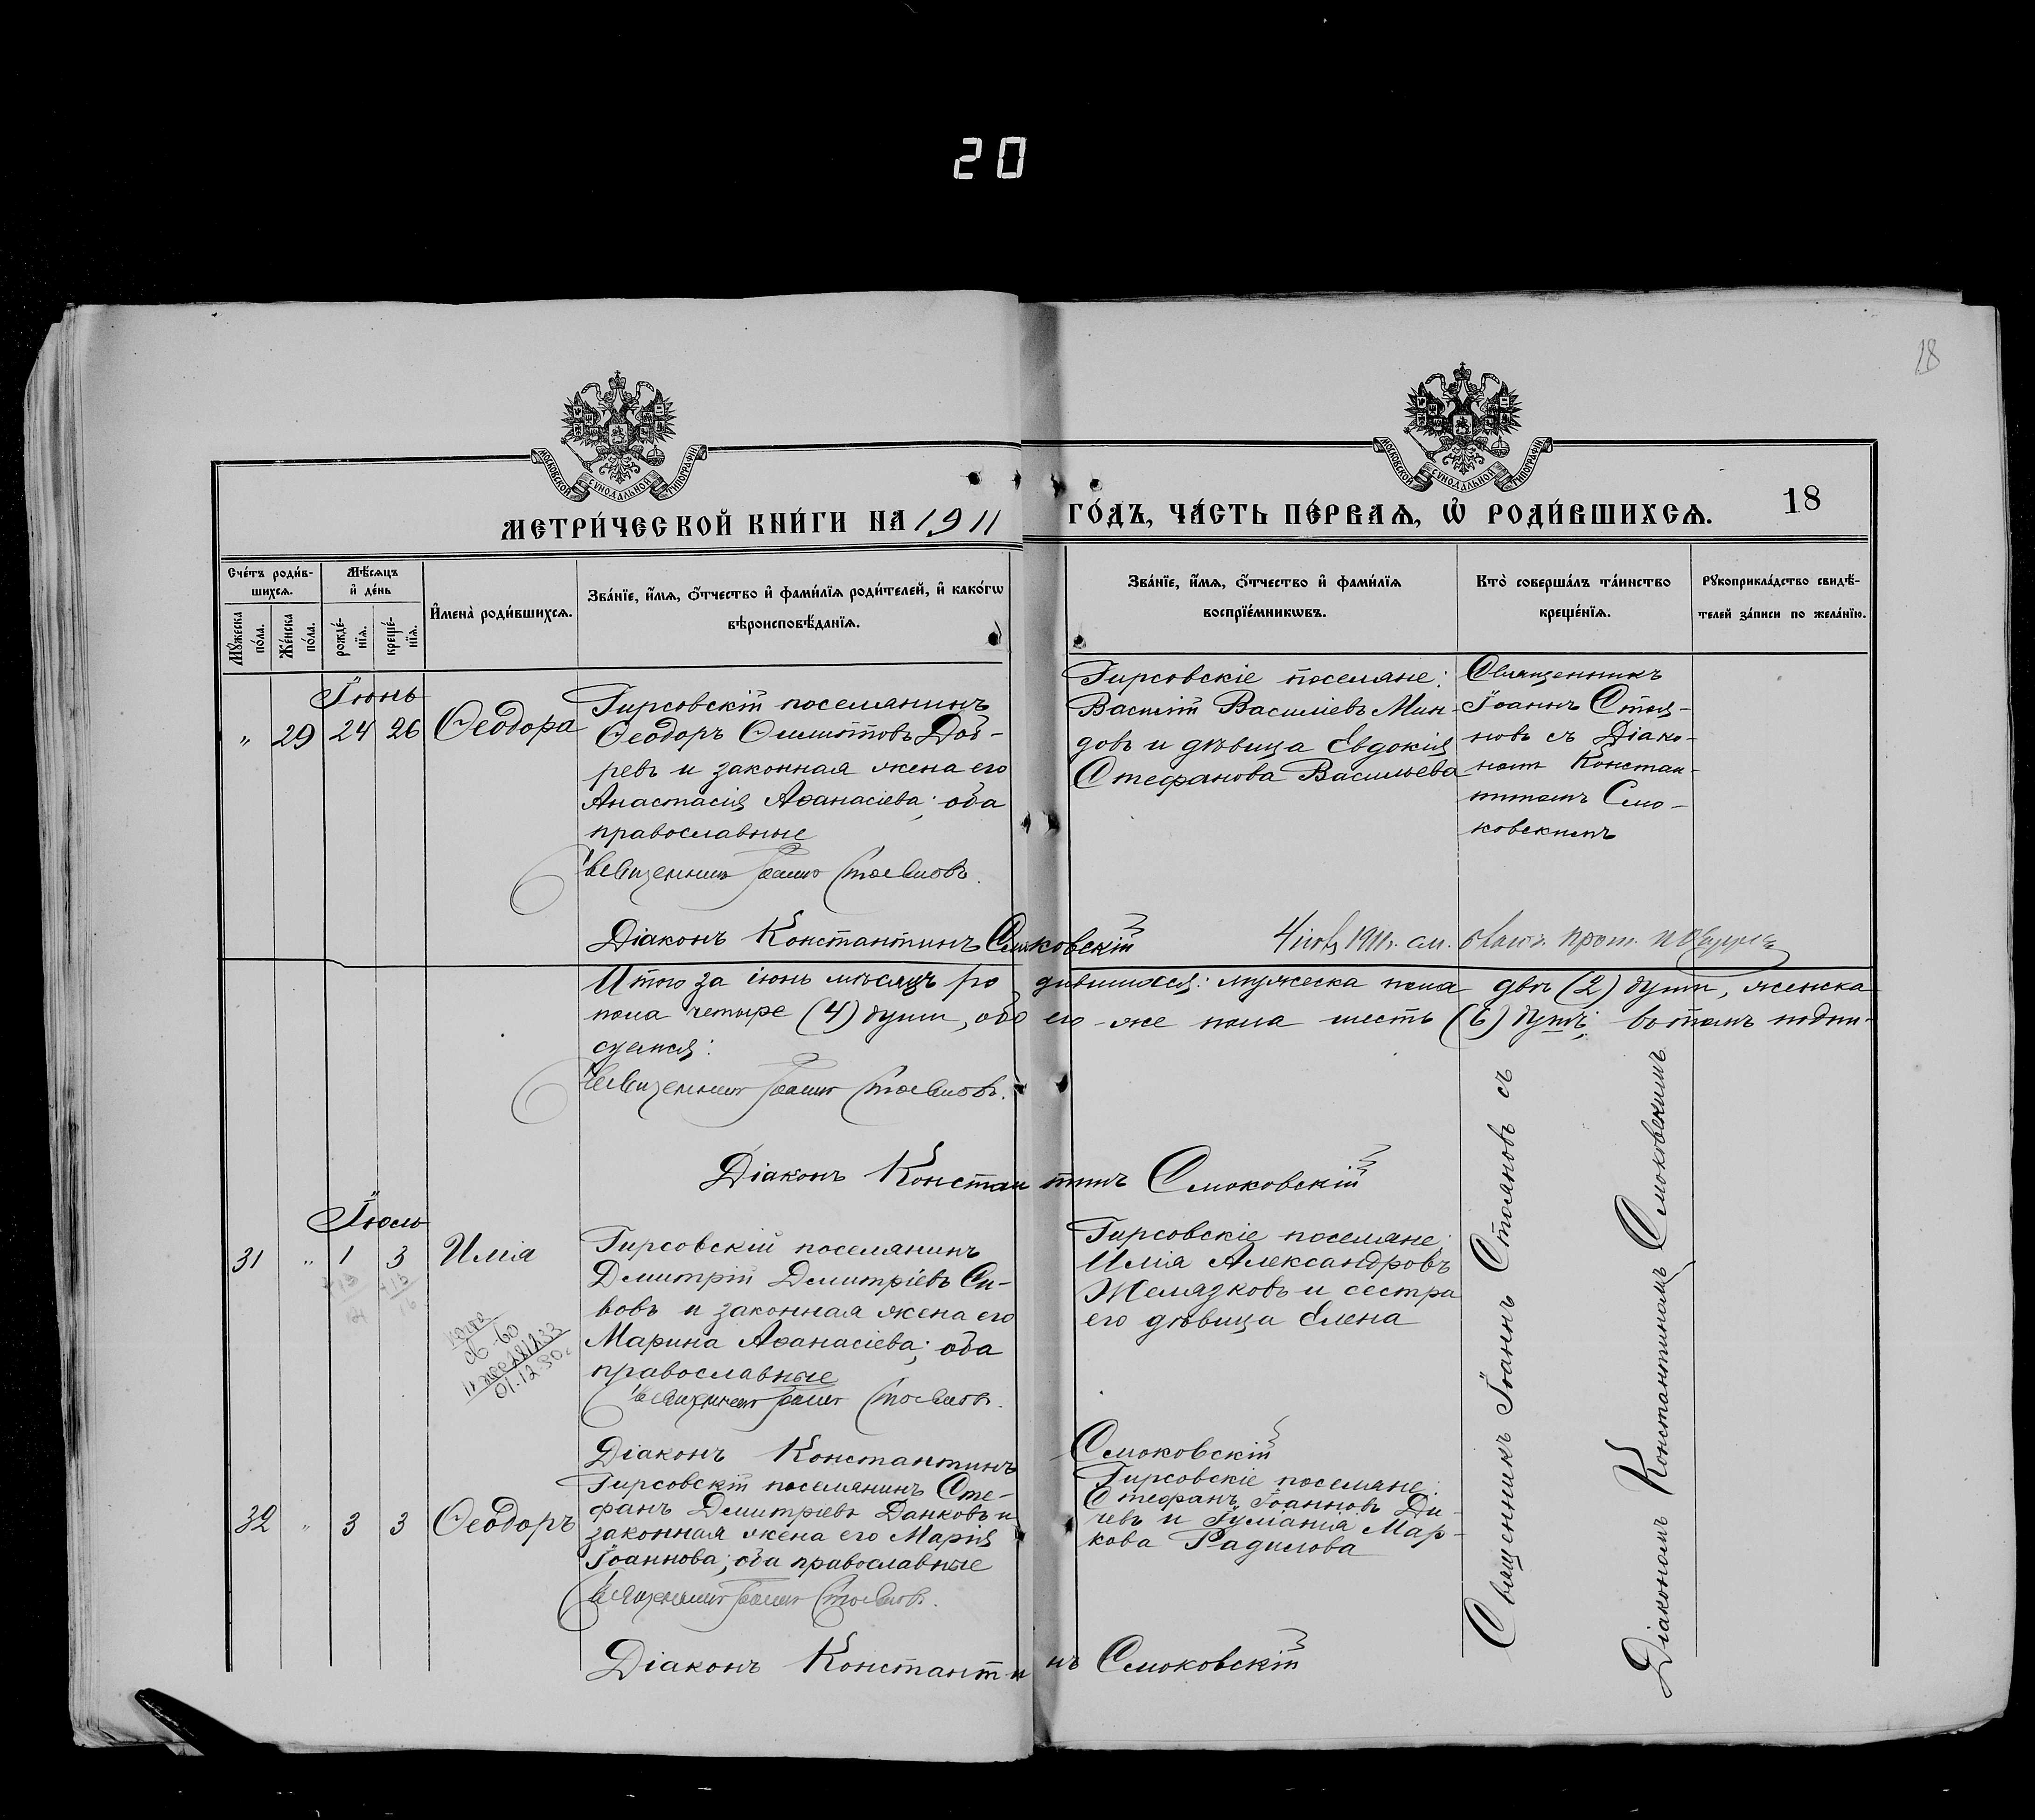 20
18
МОСКОВСКОЙ СѴНОДАЛЬНОЙ ТИПОГРАФІИ
МОСКОВСКОЙ СѴНОДАЛЬНОЙ ТИПОГРАФІИ
МЕТРИ́ЧЕСКОЙ КНИ́ГИ НА 1911 ГО́ДЪ, ЧА́СТЬ ПЕ́РВАѦ, Ѡ҆ РОДИ́ВШИХСѦ. 18
Сче́тъ роди́в-
шихсѧ.
Мꙋ́жеска по́ла.
Же́нска по́ла.
Мѣ́сѧцъ
и҆ де́нь
рожде́-
нїѧ.
креще́-
нїѧ.
И҆мена̀ роди́вшихсѧ.
Зва́нїе, и҆́мѧ, ѻ҆́тчество и҆ фами́лїѧ роди́телей, и҆ како́гѡ
вѣроисповѣ́данїѧ.
Зва́нїе, и҆́мѧ, ѻ҆́тчество и҆ фами́лїѧ
воспрїе́мникѡвъ.
Кто̀ соверша́лъ та́инство
креще́нїѧ.
Рꙋкоприкла́дство свидѣ́-
телей за́писи по жела́нїю.
Іюнь
" 29 24 26 Ѳеодора
Гирсовскій поселянинъ
Ѳеодоръ
ревъ и законная жена его
Анастасія Аѳанасіева; оба
православные
Священникъ Іоаннъ Стояновъ.
Діаконъ Константинъ Смоковскій
Гирсовскіе поселяне:
Василій Василіевъ Мин-
довъ и дѣвица Евдокія
Стефанова Васильева
Священникъ
Іоаннъ Стоя-
новъ съ Діако-
номъ Констан-
тиномъ Смо-
ковскимъ
1911 г.
Итого за іюнь мѣсяцъ родившихся: мужеска пола двѣ (2) души, женска
пола четыре (4) души, обоего-же пола шесть (6) душъ; въ томъ подпи-
суемся:
Священникъ Іоаннъ Стояновъ.
Діаконъ Константинъ Смоковскій
Іюль
31 " 1 3 Илія
Гирсовскій поселянинъ
Димитрій Димитріевъ Си-
вовъ и законная жена его
Марина Аѳанасіева; оба
православные
Священникъ Іоаннъ Стояновъ.
Діаконъ Константинъ Смоковскій
01.12.80
Гирсовскіе поселяне:
Илія Александровъ
Желязковъ и сестра
его дѣвица Елена
32 " 3 3 Ѳеодоръ
Гирсовскій поселянинъ Сте-
фанъ Димитріевъ Данковъ и
законная жена его Марія
Іоаннова; оба православные
Священникъ Іоаннъ Стояновъ.
Діаконъ Константинъ Смоковскій
Гирсовскіе поселяне:
Стефанъ Іоанновъ Ди-
чевъ и Іуліанія Мар-
кова Радилова
Священникъ Іоаннъ Стояновъ съ
Діакономъ Константиномъ Смоковскимъ